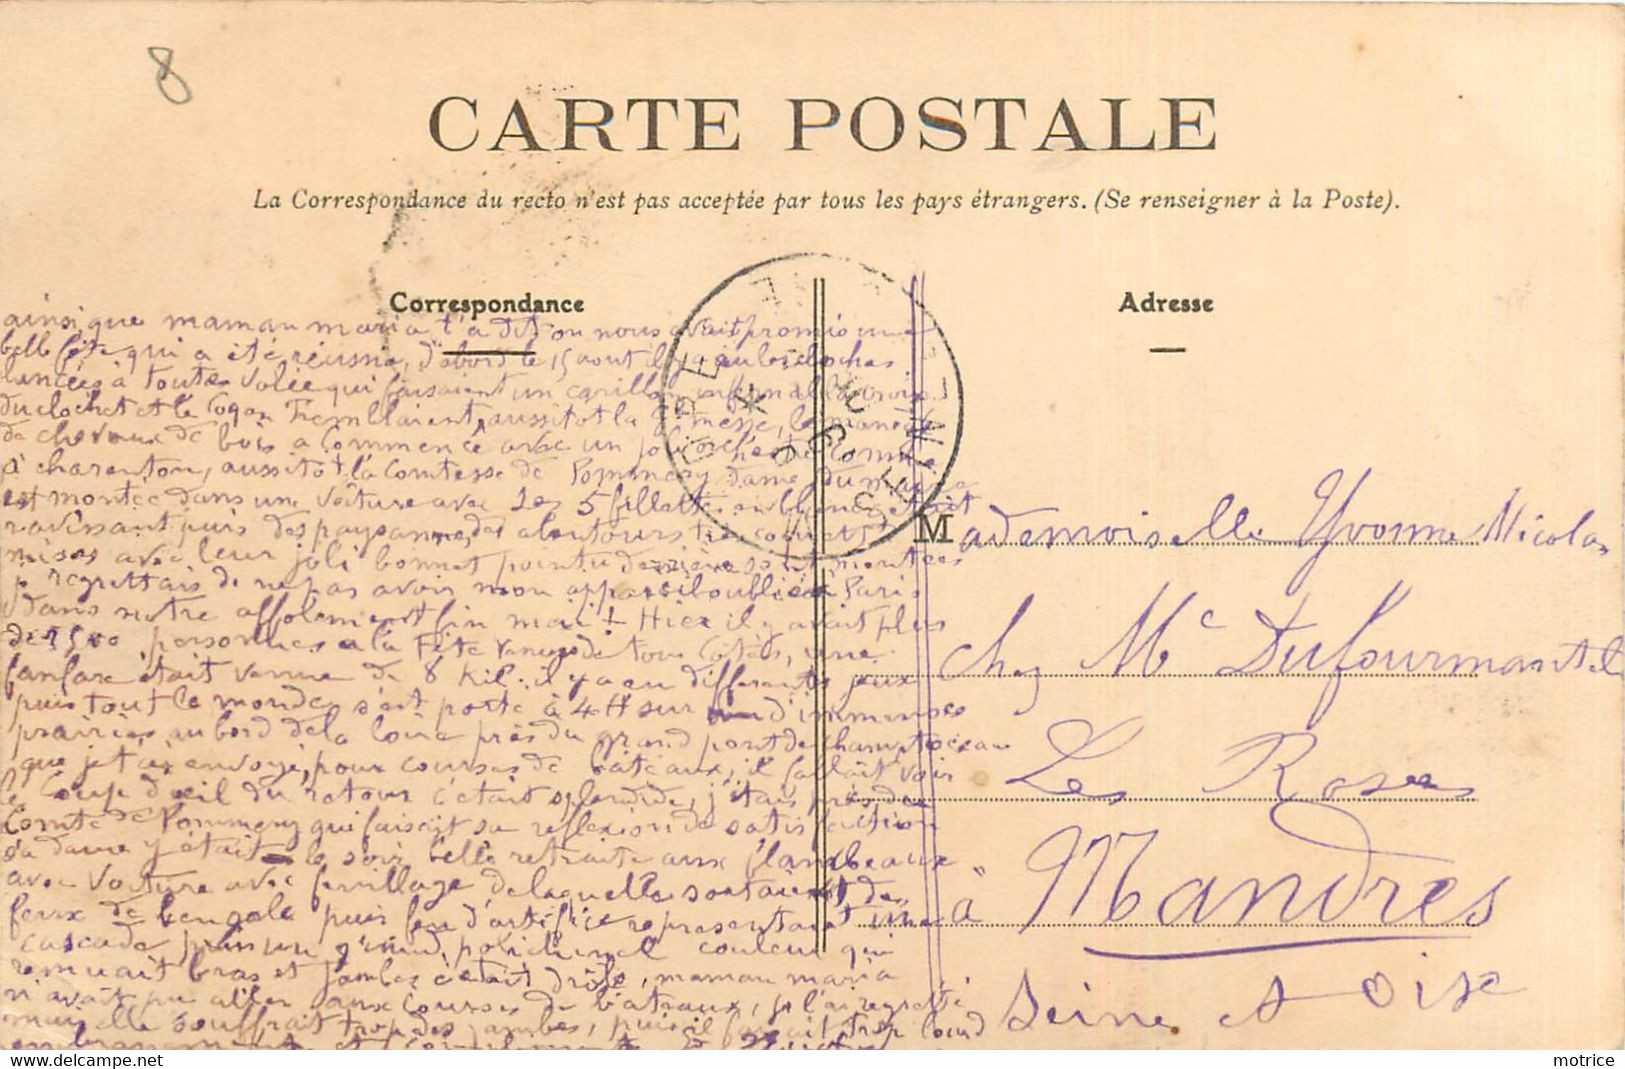 8
CARTE POSTALE
La Correspondance du recto n'est pas acceptée par tous les pays étrangers. (Se renseigner à la Poste).
Correspondance
Adresse
ainsi que maman maria t'a dit on nous avait promis une
belle fête qui a été réussie, d'abord le 15 aout il y a eu les cloches
lancées à toutes volée qui faisaient un carillon infernal la croix
du clocher et le coq en tremblaient, aussitot la messe, le manège
de chevaux de bois a commencé avec un joli orchestre comme
à charenton, aussitôt la Comtesse de Pommery dame du
est montée dans une voiture avec les 5 fillettes en blanc c'était
ravissant puis des paysannes des alentours très coquettes
mises avec leur joli bonnet pointu derrière sont montées
je regrettais de ne pas avoir mon appareil oublié à Paris
dans notre affolement fin mai ! Hier il y avait plus
de 1500 personnes a la Fête venues de tous Cotés, une
fanfare était venue de 8 Kil. il y a eu differents jeux
puis tout le monde s'est porté à 4H sur d'immenses
prairies au bord de la Loire près du grand pont de champtoceau
que je t'ai envoyé, pour courses de bateaux, il fallait voir
le Coup d'oeil du retour c'était splendide, j'étais près du
Comte de Pommery qui faisait sa reflexion de satisfaction
sa dame y était le soir belle retraite aux flambeaux
avec voiture avec feuillage de laquelle sortaient des
feux de bengale puis feu d'artifice representant une
cascade puis un grand polichinel couleur qui
remuait bras et jambes c'était drôle, maman maria
n'avait pu aller aux courses de bateaux, je l'ai regretté
mais elle souffrait trop des jambes, puis il faisait trop lourd
Mademoiselle Yvonne Nicolas
chez Mc Dufourmantel
Les Roses
à Mandres
Seine et Oise
delcampe.net
motrice